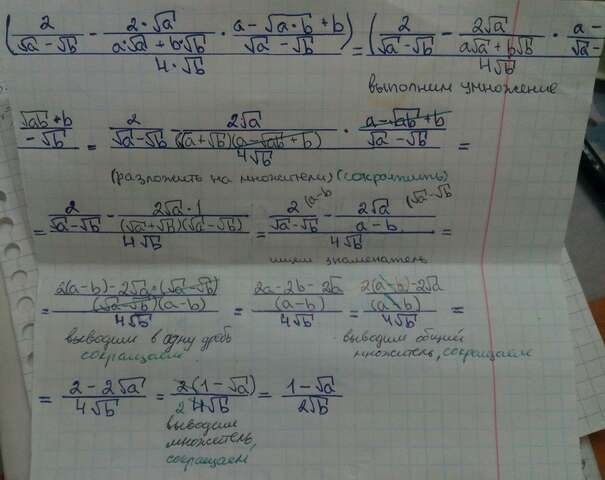 (2/(√a - √b) - (2·√a)/(a·√a + b·√b) · (a - √(a·b) + b)/(√a - √b)) / (4·√b) = (2/(√a - √b) - (2√a)/(a√a + b√b) · (a - / (√a - / (4√b)
выполним умножение
(√ab + b)/(-√b) = (2/(√a - √b) - (2√a)/((√a + √b)(a - √ab + b)) · (a - √ab + b)/(√a - √b)) / (4√b) =
(разложить на множители) (сократить)
= (2/(√a - √b) - (2√a·1)/((√a + √b)(√a - √b))) / (4√b) = (2 (a-b)/(√a - √b) - 2√a (√a - √b)/(a - b)) / (4√b) =
ищем знаменатель
= ((2(a-b) - 2√a·(√a - √b))/((√a - √b)(a-b))) / (4√b) = ((2a - 2b - 2√a)/(a-b)) / (4√b) = ((2(a-b) - 2√a)/(a-b)) / (4√b) =
выводим в одну дробь
сокращаем
выводим общий
множитель, сокращаем
= (2 - 2√a)/(4√b) = (2(1 - √a))/(2 4√b) = (1 - √a)/(2√b)
выводим
множетель,
сокращаем